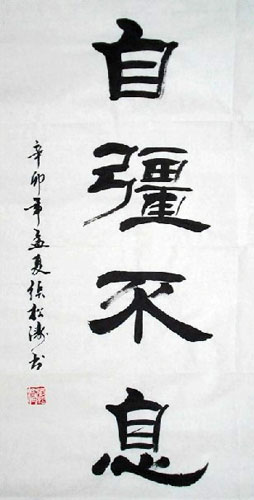 自彊不息
辛卯年孟夏張松濤书